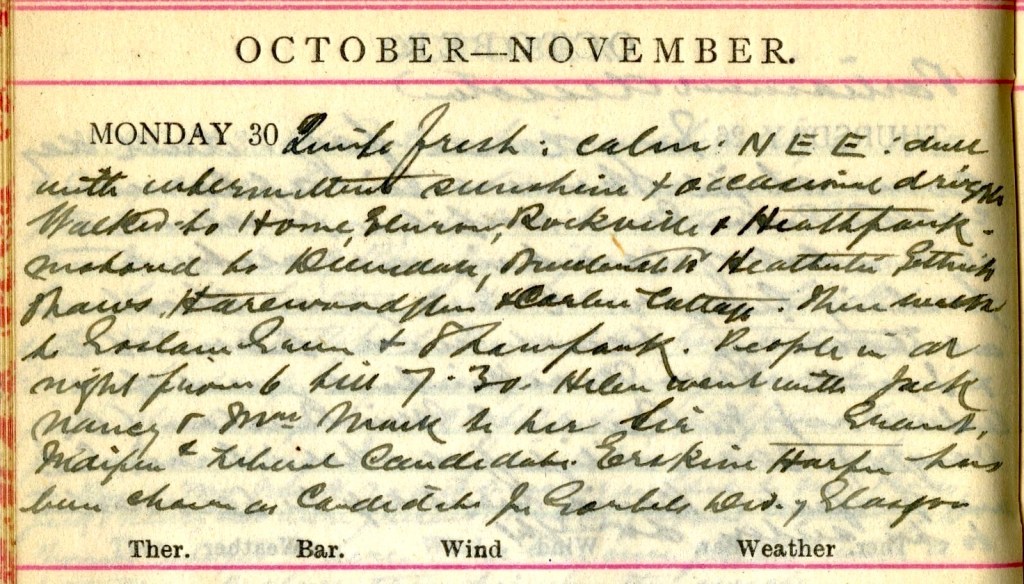 OCTOBER—NOVEMBER.
MONDAY 30 Quite fresh: calm: N E E: dull
with intermittent sunshine & occasional drizzle
Walked to Home, Rockville & Heathpark.
motored to Heathlie Ettrick
Shaws, Harewoodglen & Cottage. Then walk
to & Shawpark. People in at
night from 6 till 7.30. Helen went with Jack
Nancy & Mrs Mark to her Sir Grant,
Indepent Liberal Candidate. Erskine Harper has
been chosen as Candidate for Gorbals Div. of Glasgow
Ther. Bar. Wind Weather